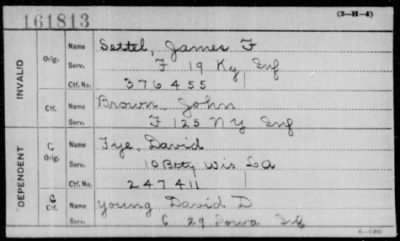 161813
(3-H-4)
INVALID
Orig.
Name Settel, James F
Serv. F 19 Ky Inf
Ctf. No. 376455
Ctf.
Name Brown John
Serv. F 125 NY Inf
DEPENDENT
C
Orig.
Name Tye, David
Serv. 10 Btty Wis LA
Ctf. No. 247411
C
Ctf.
Name Young David D
Serv. C 29 Iowa Inf